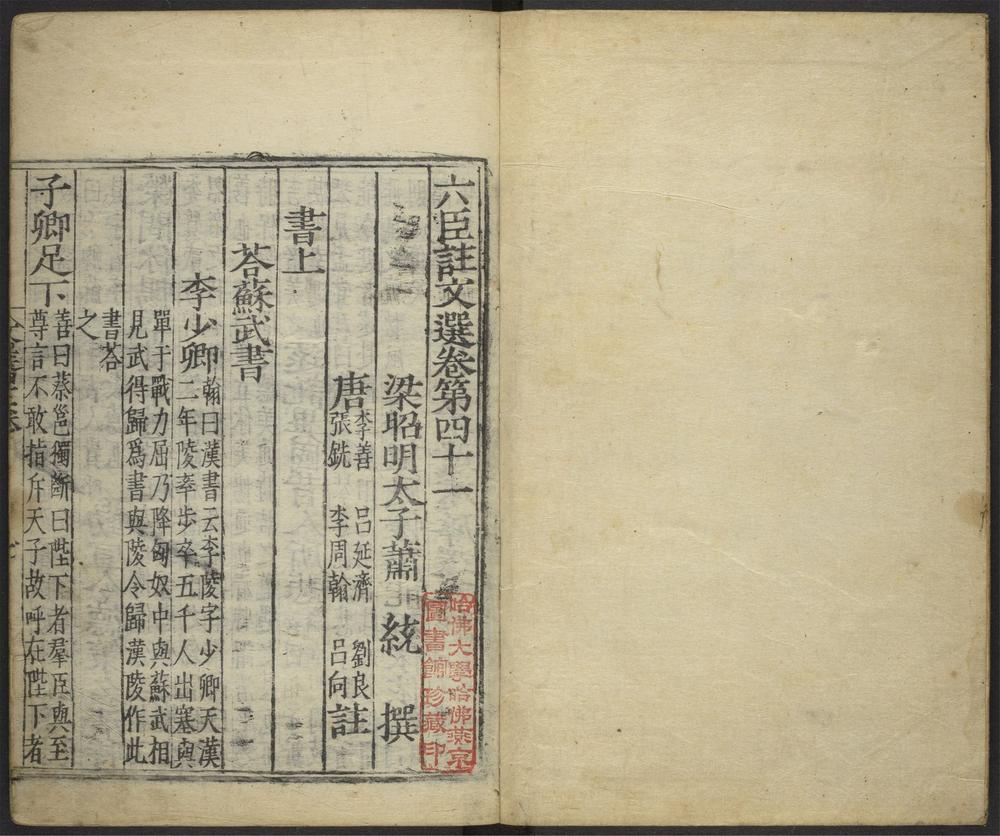 六臣註文選卷第四十一
梁昭明太子蕭統撰
唐李善 呂延濟 劉良
張銑 李周翰 呂向註
書上
荅蘇武書
李少卿翰曰漢書云李陵字少卿天漢
二年陵率步卒五千人出塞與
單于戰力屈乃降匈奴中與蘇武相
見武得歸爲書與陵令歸漢陵作此
書荅
之
子卿足下善曰蔡邕獨斷曰陛下者羣臣與至
尊言不敢指斥天子故呼在陛下者
哈佛大學哈佛燕京
圖書館珍藏印